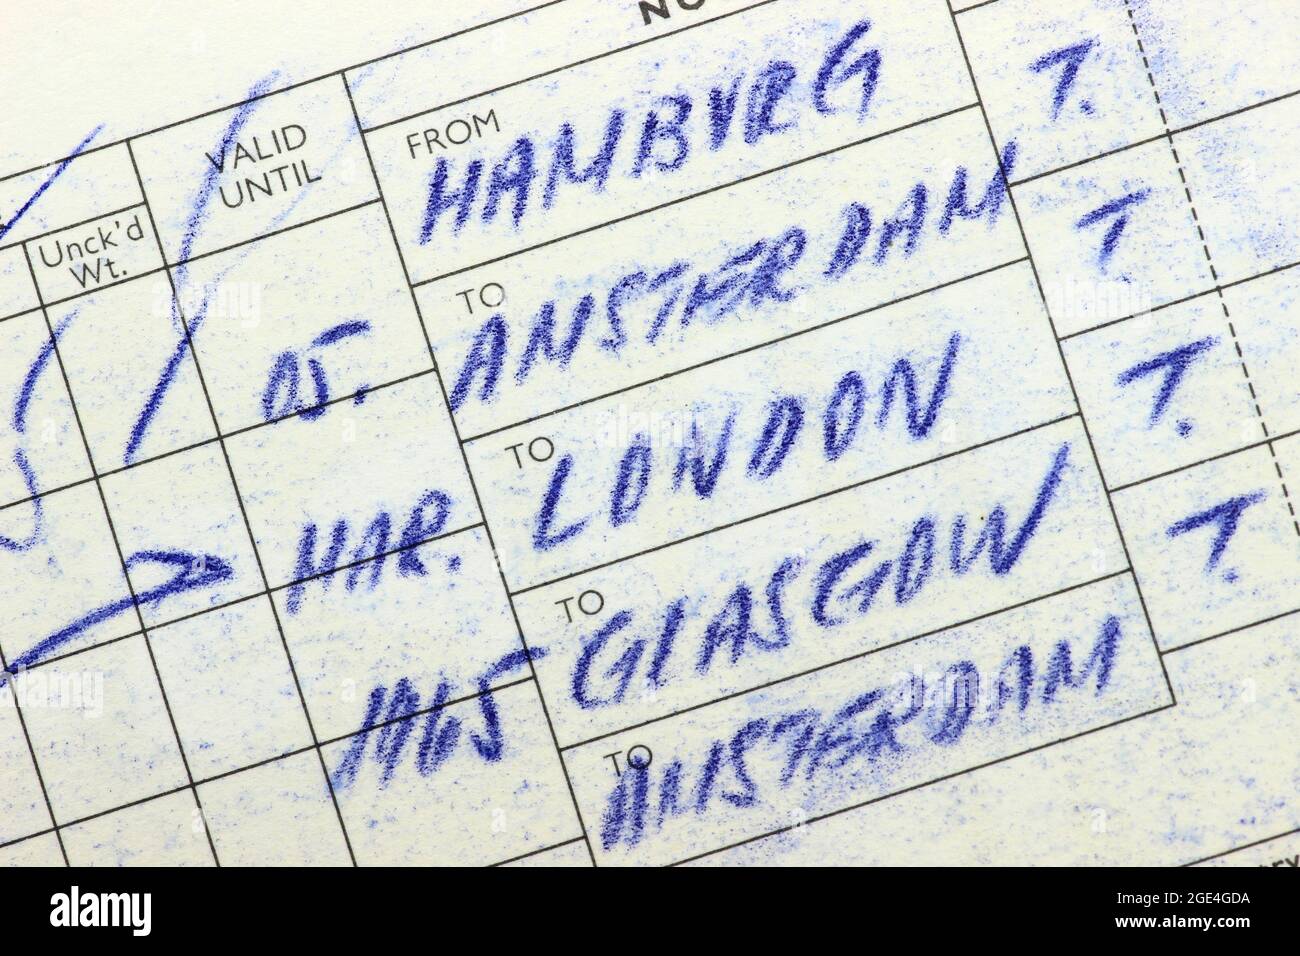 NO
VALID
UNTIL
FROM
HAMBURG
T.
Unck'd
Wt.
TO
AMSTERDAM
T
05.
TO
LONDON
T.
MAR.
TO
GLASGOW
T.
1965
TO
AMSTERDAM
alamy
Image ID: 2GE4GDA
www.alamy.com